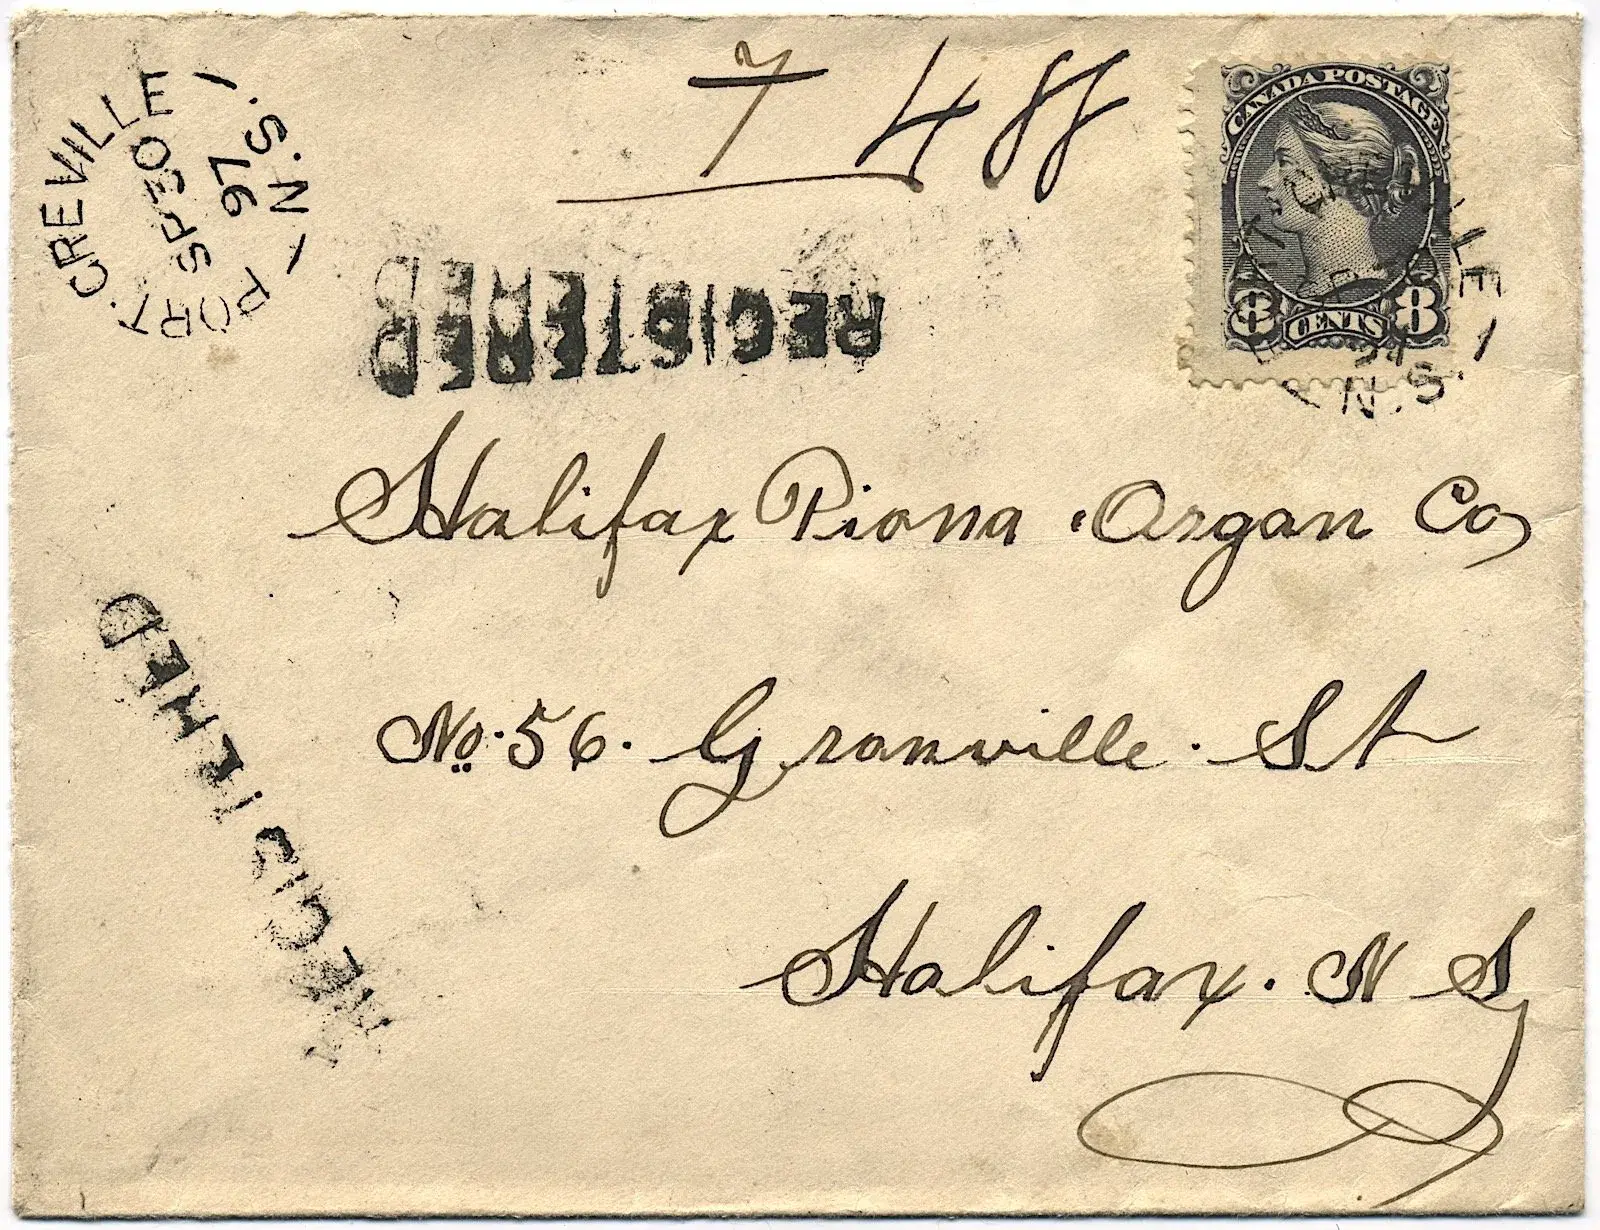 7 4 88
PORT GREVILLE N.S.
SP 30
97
CANADA POSTAGE
8 CENTS 8
LLE N.S.
REGISTERED
Halifax Piona & Organ Co,
No. 56. Granville. St
REGISTERED
Halifax. N S